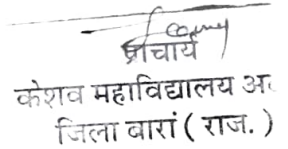 प्राचार्य
केशव महाविद्यालय
जिला बारां ( राज. )